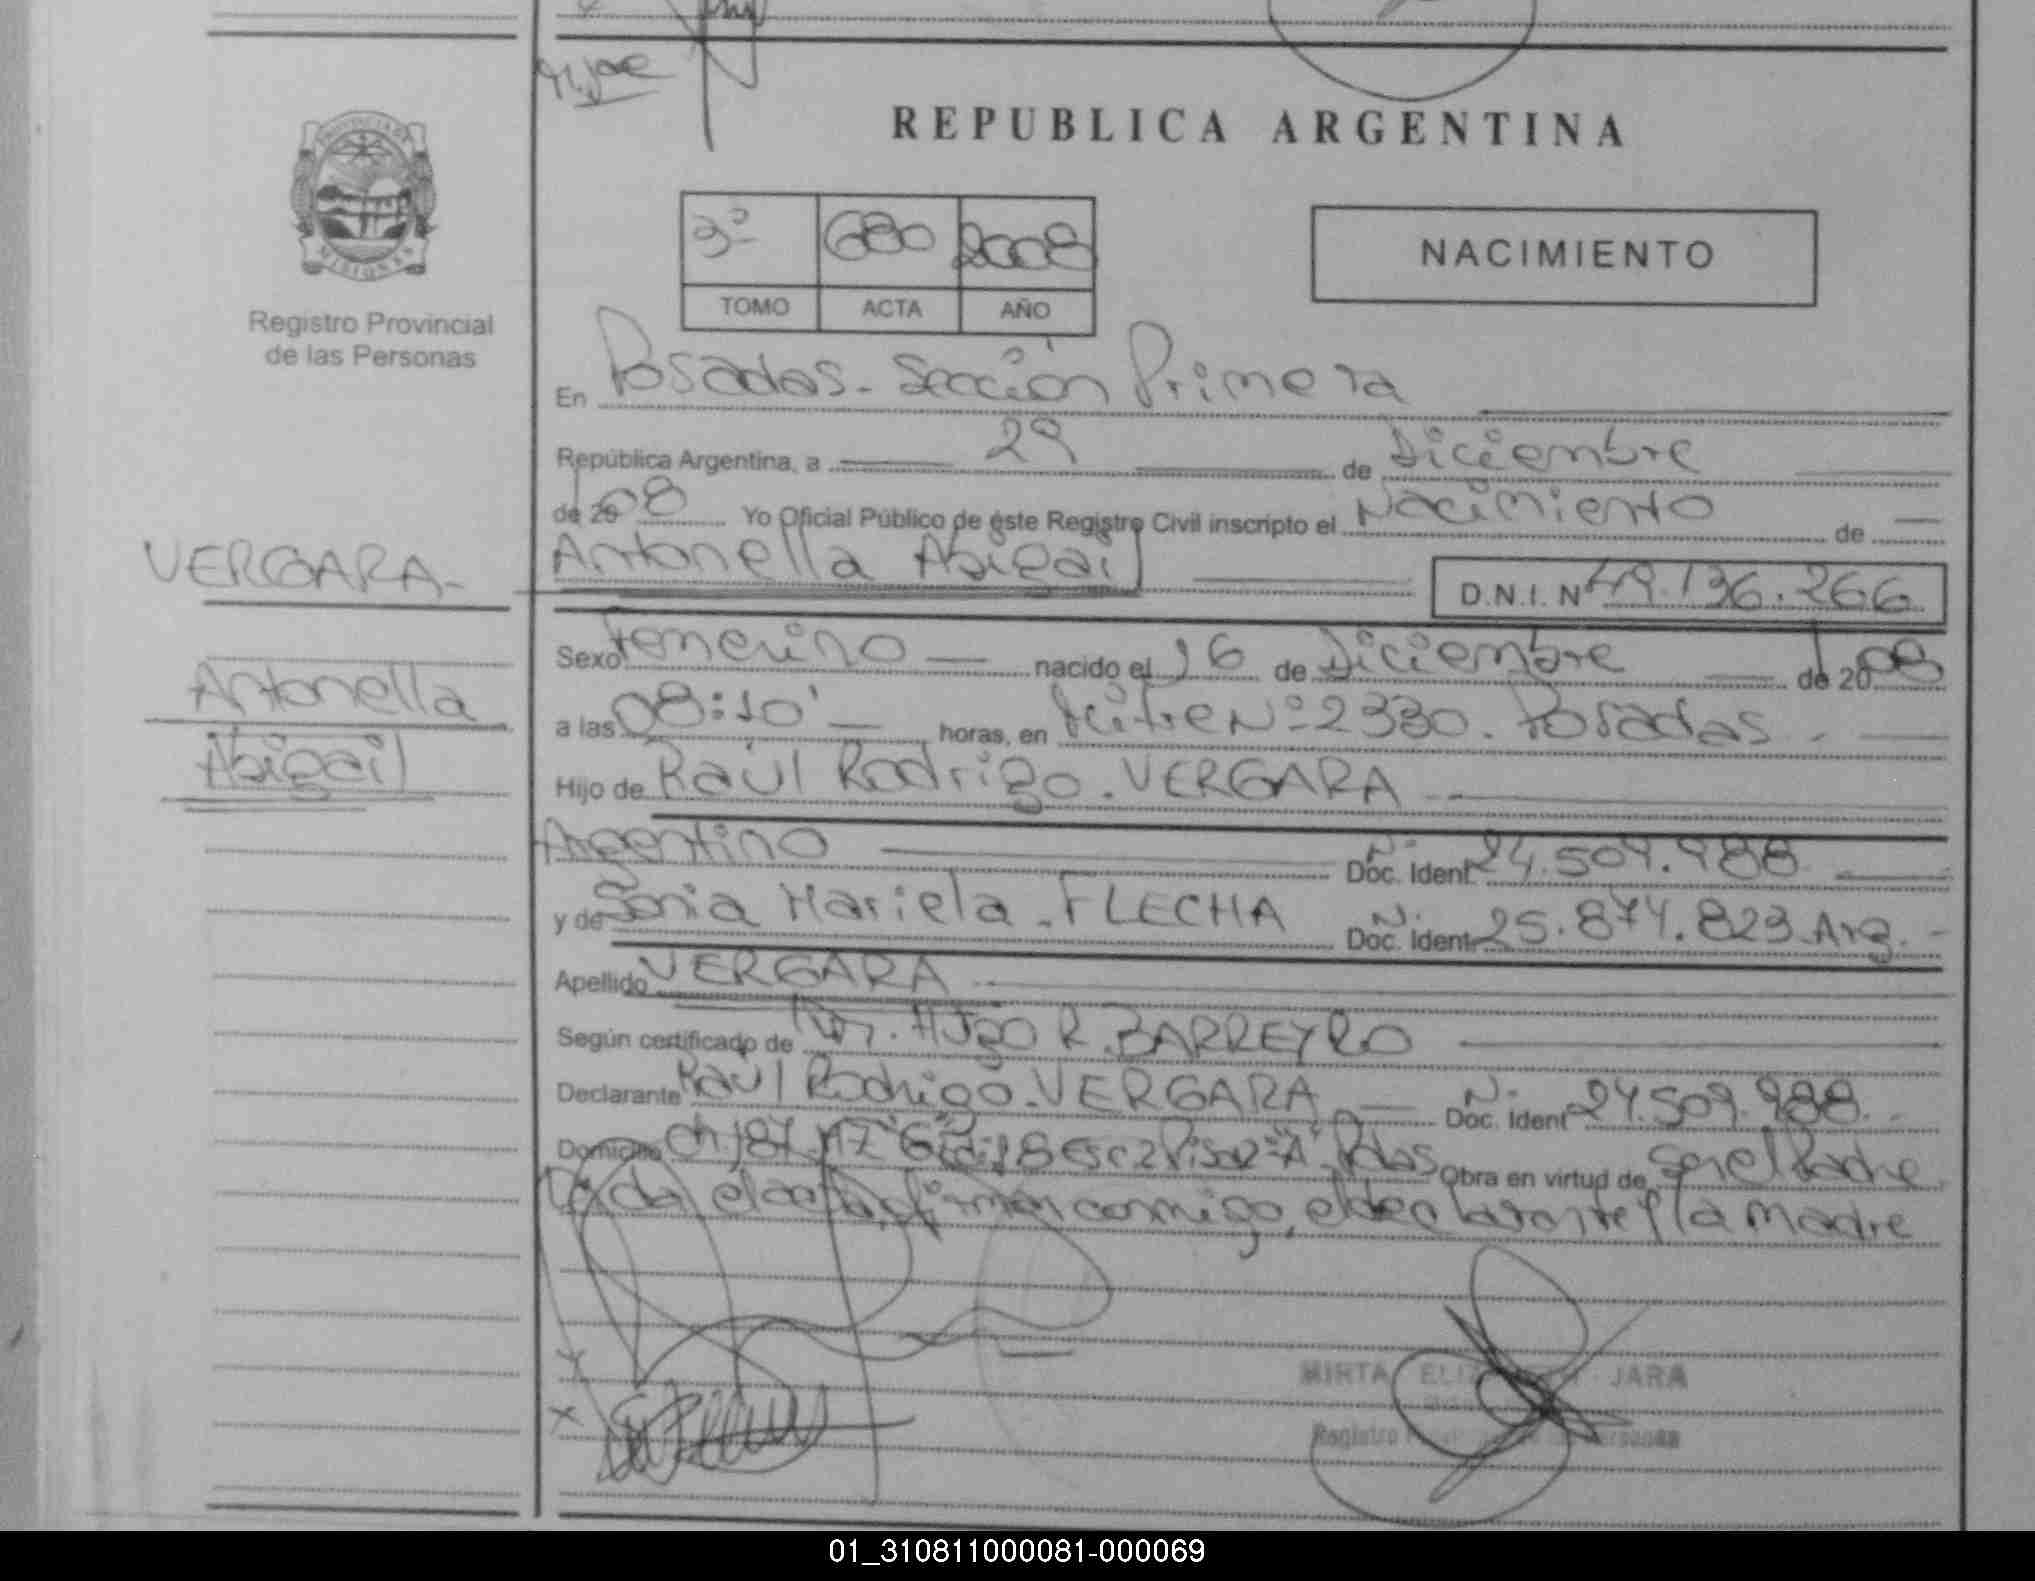 REPUBLICA ARGENTINA
PROVINCIA DE
MISIONES
Registro Provincial
de las Personas
3º 680 2008
TOMO ACTA AÑO
NACIMIENTO
En Posadas - Sección Primera
República Argentina, a 29 de Diciembre
de 2008 Yo Oficial Público de éste Registro Civil inscripto el Nacimiento de
Antonella Abigail D.N.I. Nº 49.136.266
VERGARA-
Antonella
Abigail
Sexo Femenino nacido el 16 de Diciembre de 2008
a las 08:10' horas, en Mitre Nº 2330. Posadas
Hijo de Raúl Rodrigo. VERGARA
Argentino Nº Doc. Ident 24.509.988
y de Sonia Mariela. FLECHA Nº Doc. Ident 25.874.823 Arg.
Apellido VERGARA
Según certificado de Dr. Hugo R. BARREYRO
Declarante Raúl Rodrigo. VERGARA Nº Doc. Ident 24.509.988
Domicilio Ch 187 MZ "G" Ed: 18 Esc 2 Piso 2º "A" Pdas Obra en virtud de Ser el Padre
Leída el acta, firman conmigo, el declarante y la madre
MIRTA JARA
Registro
01_310811000081-000069